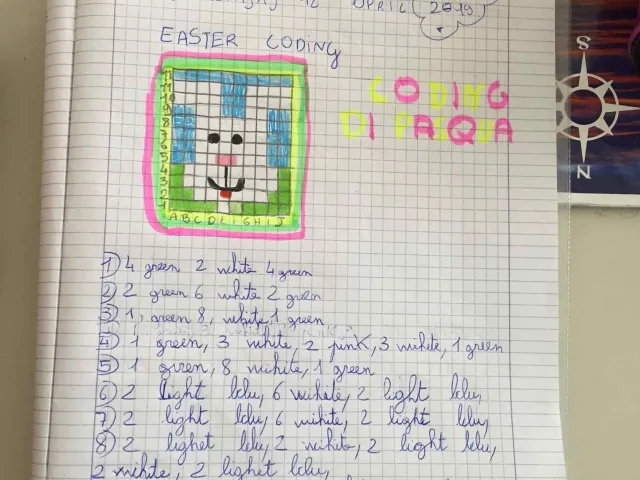 APRIL 2019
EASTER CODING
CODING
DI PASQUA
S
N
11
10
9
8
7
6
5
4
3
2
1
A B C D I G H I J
1) 4 green 2 white 4 green
2) 2 green 6 white 2 green
3) 1, green 8, white, 1 green
4) 1 green, 3 white, 2 pinK, 3 white, 1 green
5) 1 green, 8 white, 1 green
6) 2 light blu, 6 white, 2 light blu,
7) 2 light blu, 6 white, 2 light blu,
8) 2 lighet blu, 2 white, 2 light blu,
2 white, 2 lighet blu,